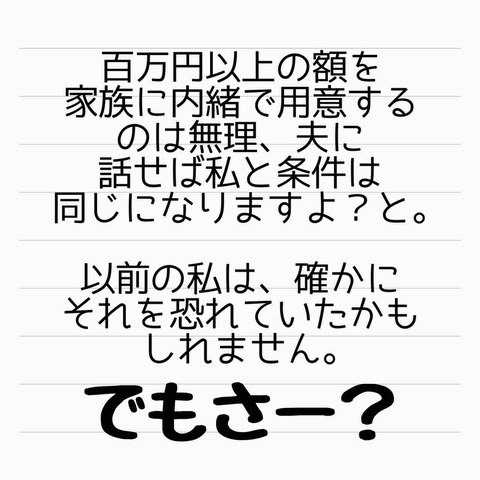 百万円以上の額を
家族に内緒で用意する
のは無理、夫に
話せば私と条件は
同じになりますよ？と。
以前の私は、確かに
それを恐れていたかも
しれません。
でもさー？